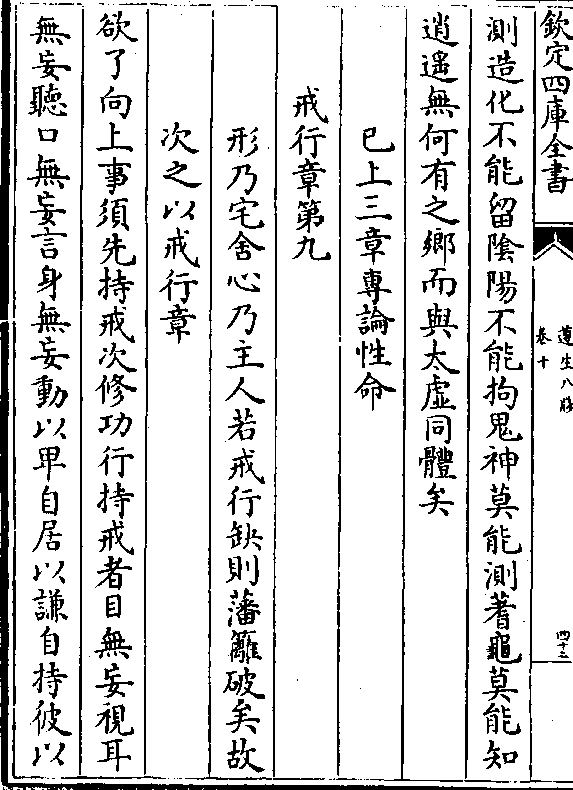 欽定四庫全書
遵生八牋
卷十
四十三
測造化不能留陰陽不能拘鬼神莫能測蓍龜莫能知
逍遥無何有之鄉而與太虛同體矣
已上三章專論性命
戒行章第九
形乃宅舍心乃主人若戒行缺則藩籬破矣故
次之以戒行章
欲了向上事須先持戒次修功行持戒者目無妄視耳
無妄聽口無妄言身無妄動以卑自居以謙自持彼以